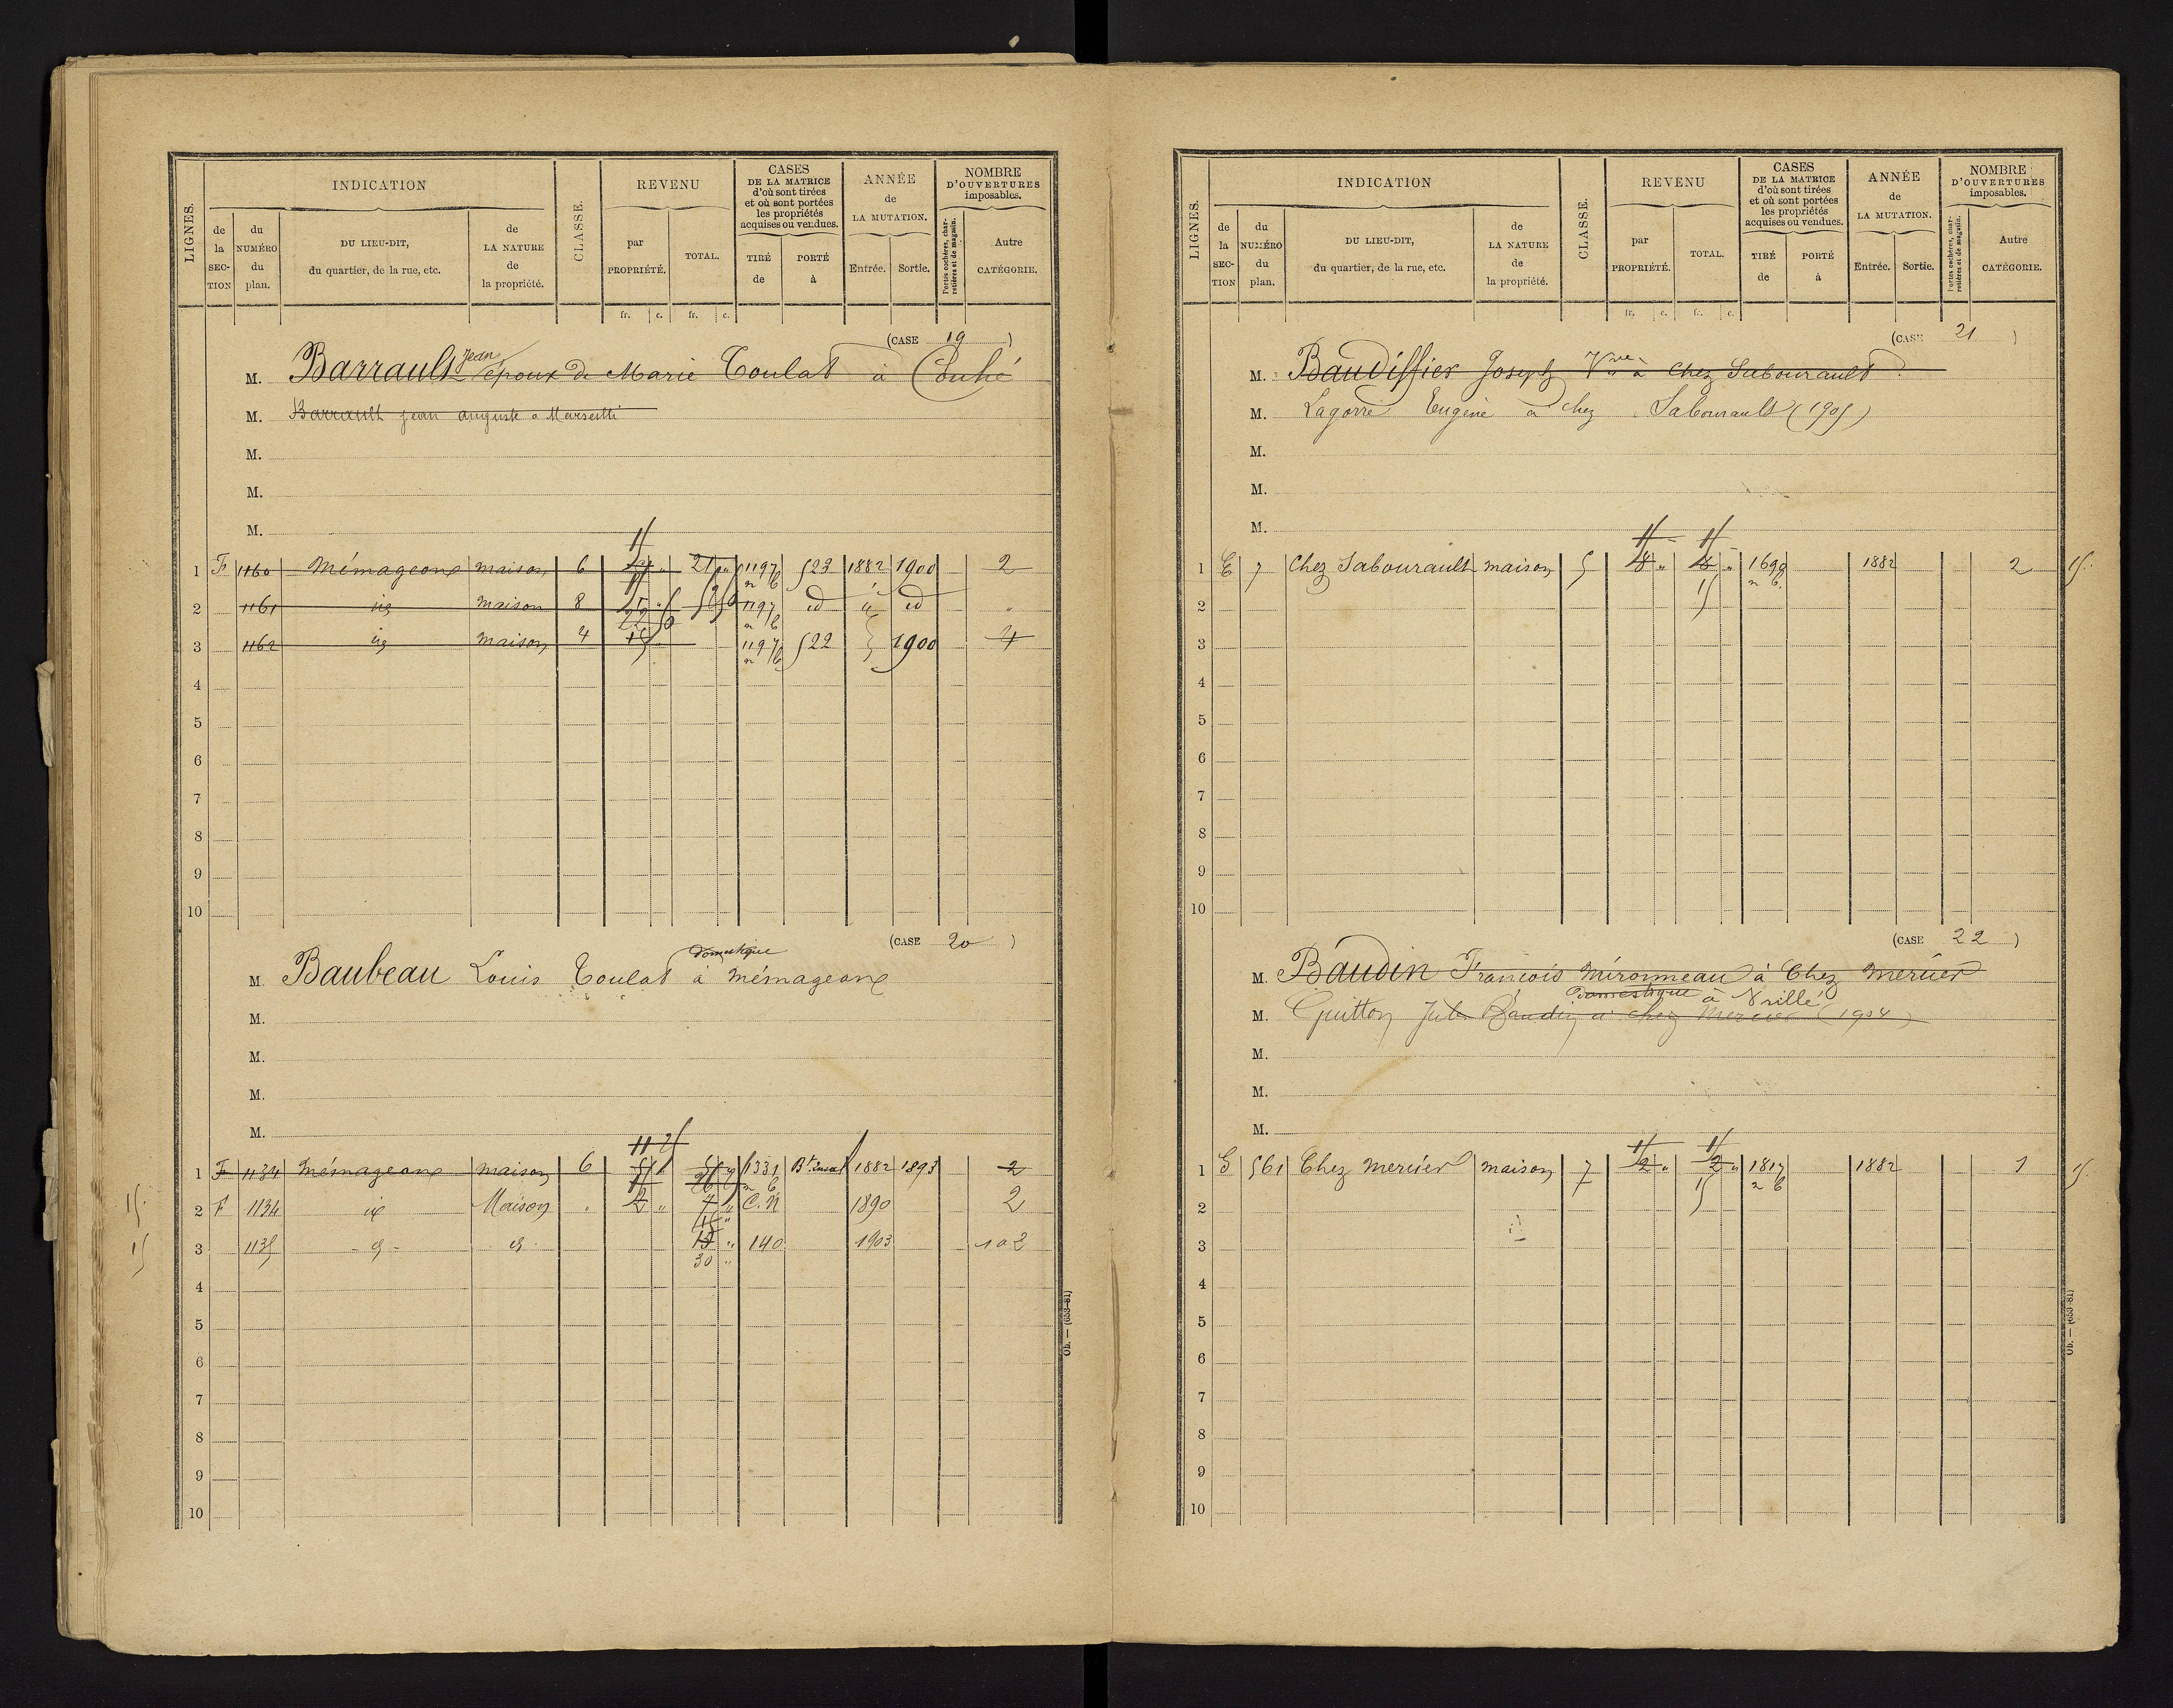 LIGNES.
INDICATION
de la SECTION
du NUMÉRO du plan.
DU LIEU-DIT, du quartier, de la rue, etc.
de LA NATURE de la propriété.
CLASSE.
REVENU
par PROPRIÉTÉ.
TOTAL.
CASES DE LA MATRICE d'où sont tirées et où sont portées les propriétés acquises ou vendues.
TIRÉ de
PORTÉ à
ANNÉE de LA MUTATION.
Entrée.
Sortie.
NOMBRE D'OUVERTURES imposables.
Portes cochères, charretières et de magasin.
Autre CATÉGORIE.
fr. c. fr. c.
(CASE 19)
M. Barrault Jean époux de Marie Toulat à Couhé
M. Barrault jean auguste a
M.
M.
M.
1 F 1160 Mémageone maison 6 21 " 1197 523 1882 1900 2
2 1161 id maison 8 1197 id id "
3 1162 id maison 4 1197 522 1900 4
4
5
6
7
8
9
10
(CASE 20)
domestique
M. Baubeau Louis Toulat à mémageone
M.
M.
M.
M.
1 F 1134 mémageone maison 6 1331 1882 1893 2
2 F 1134 id Maison " 2 " 7 " C.N 1890 2
3 1135 - d - d 15 " 140 1903 102
30 "
4
5
6
7
8
9
10
Ob. — (653-81)
LIGNES.
INDICATION
de la SECTION
du NUMÉRO du plan.
DU LIEU-DIT, du quartier, de la rue, etc.
de LA NATURE de la propriété.
CLASSE.
REVENU
par PROPRIÉTÉ.
TOTAL.
CASES DE LA MATRICE d'où sont tirées et où sont portées les propriétés acquises ou vendues.
TIRÉ de
PORTÉ à
ANNÉE de LA MUTATION.
Entrée.
Sortie.
NOMBRE D'OUVERTURES imposables.
Portes cochères, charretières et de magasin.
Autre CATÉGORIE.
fr. c. fr. c.
(CASE 21)
M. Baudiffier Joseph Vve à chez Sabourault
M. Lagorre Eugène à chez Sabourault (1905)
M.
M.
M.
1 E 7 Chez Sabourault maison 5 18 " 18 " 1699 1882 2 15
2
3
4
5
6
7
8
9
10
(CASE 22)
M. Baudin François mironneau à Chez mercier
domestique à Vrillé
M. Guitton Jules Baudin à chez Mercier (1904)
M.
M.
M.
1 G 561 Chez mercier maison 7 2 " 2 " 1817 1882 1 15
2
3
4
5
6
7
8
9
10
Ob. — (653-81)